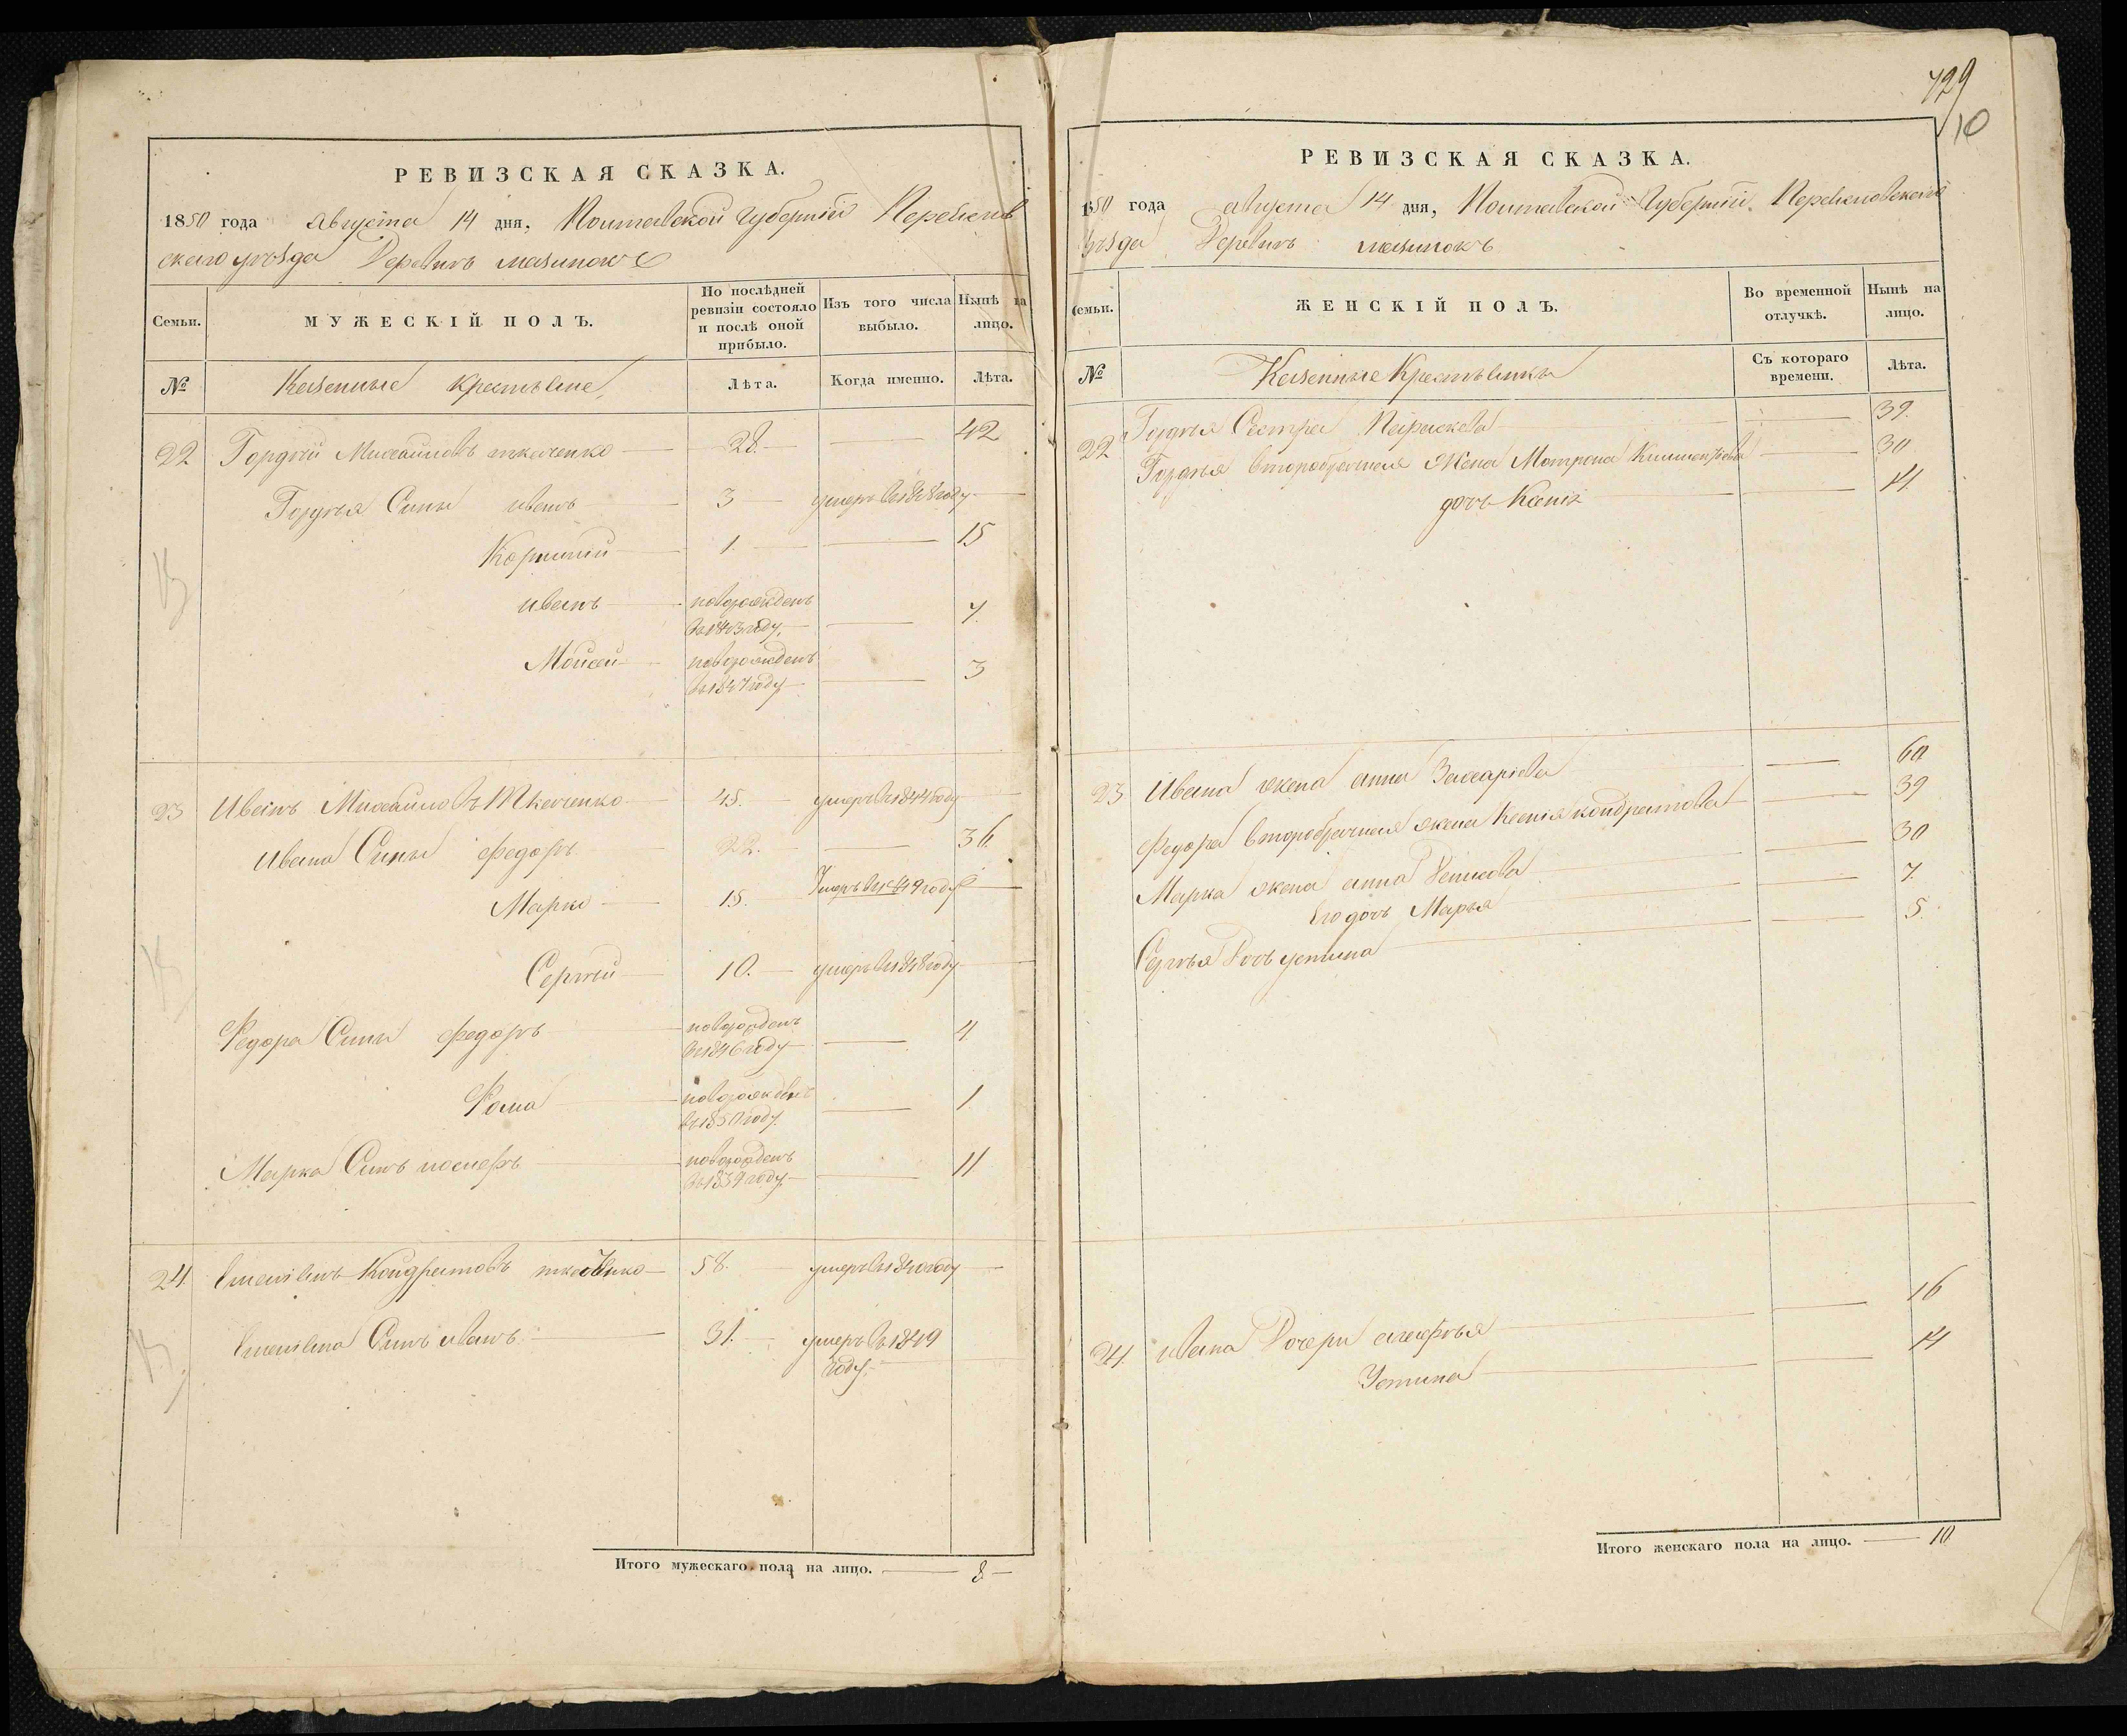 РЕВИЗСКАЯ СКАЗКА.
1850 года августа 14 дня, Полтавской Губерніи Переяслов
скаго уѣзда Деревнѣ мазинокъ
Семьи.
МУЖЕСКІЙ ПОЛЪ.
По послѣдней ревизіи состояло и послѣ оной прибыло.
Изъ того числа выбыло.
Нынѣ на лицо.
№
Казенные крестьяне
Лѣта.
Когда именно.
Лѣта.
22 Гордѣй Михайловъ ткаченко 28. 42
Гордѣя Сины иванъ 3 умеръ въ 1838 году
Корнилій 1. 15
иванъ новорожденъ
въ 1843 году, 7.
Мойсей новорожденъ
въ 1847 году 3
23 Иванъ Михайловъ Ткаченко 45. умеръ въ 1844 году
ивана Сины федоръ 22. 36
Марко 15. Умеръ въ 1849 году
Сергѣй 10. умеръ въ 1848 году
Федора Сины федоръ новорожденъ
въ 1846 году 4
Фома новорожденъ
въ 1850 году. 1
Марка Синъ новорожденъ
въ 1839 году. 11
24. Кондратовъ ткаченко 58. умеръ въ 1840 году
Синъ иванъ 31. умеръ въ 1849
году.
Итого мужескаго пола на лицо. 8
729
10
РЕВИЗСКАЯ СКАЗКА.
1850 года августа 14 дня, Полтавской Губерніи Переясловскаго
уѣзда Деревнѣ мазинокъ
Семьи.
ЖЕНСКІЙ ПОЛЪ.
Во временной отлучкѣ.
Нынѣ на лицо.
№
Казенные Крестьянки
Съ котораго времени.
Лѣта.
22 Гордѣя Сестра Параскева 39.
Гордѣя второбрачная Жена Матрона Климентіева 30
дочь Ксенія 14
23 Ивана жена анна Захаріева 60
Федора второбрачная жена Ксенія кондратова 39
Марка жена анна 30
Его дочь Марья 7.
Сергѣя Дочь устина 5.
24. ивана Дочери 16
Устина 14
Итого женскаго пола на лицо. 10